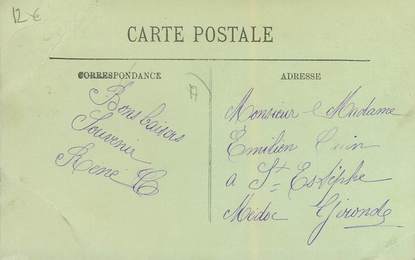 12 €
CARTE POSTALE
CORRESPONDANCE
ADRESSE
Bons baisers
Souvenir
René C
Monsieur & Madame
Emilien
a St Estèphe
Médoc Gironde